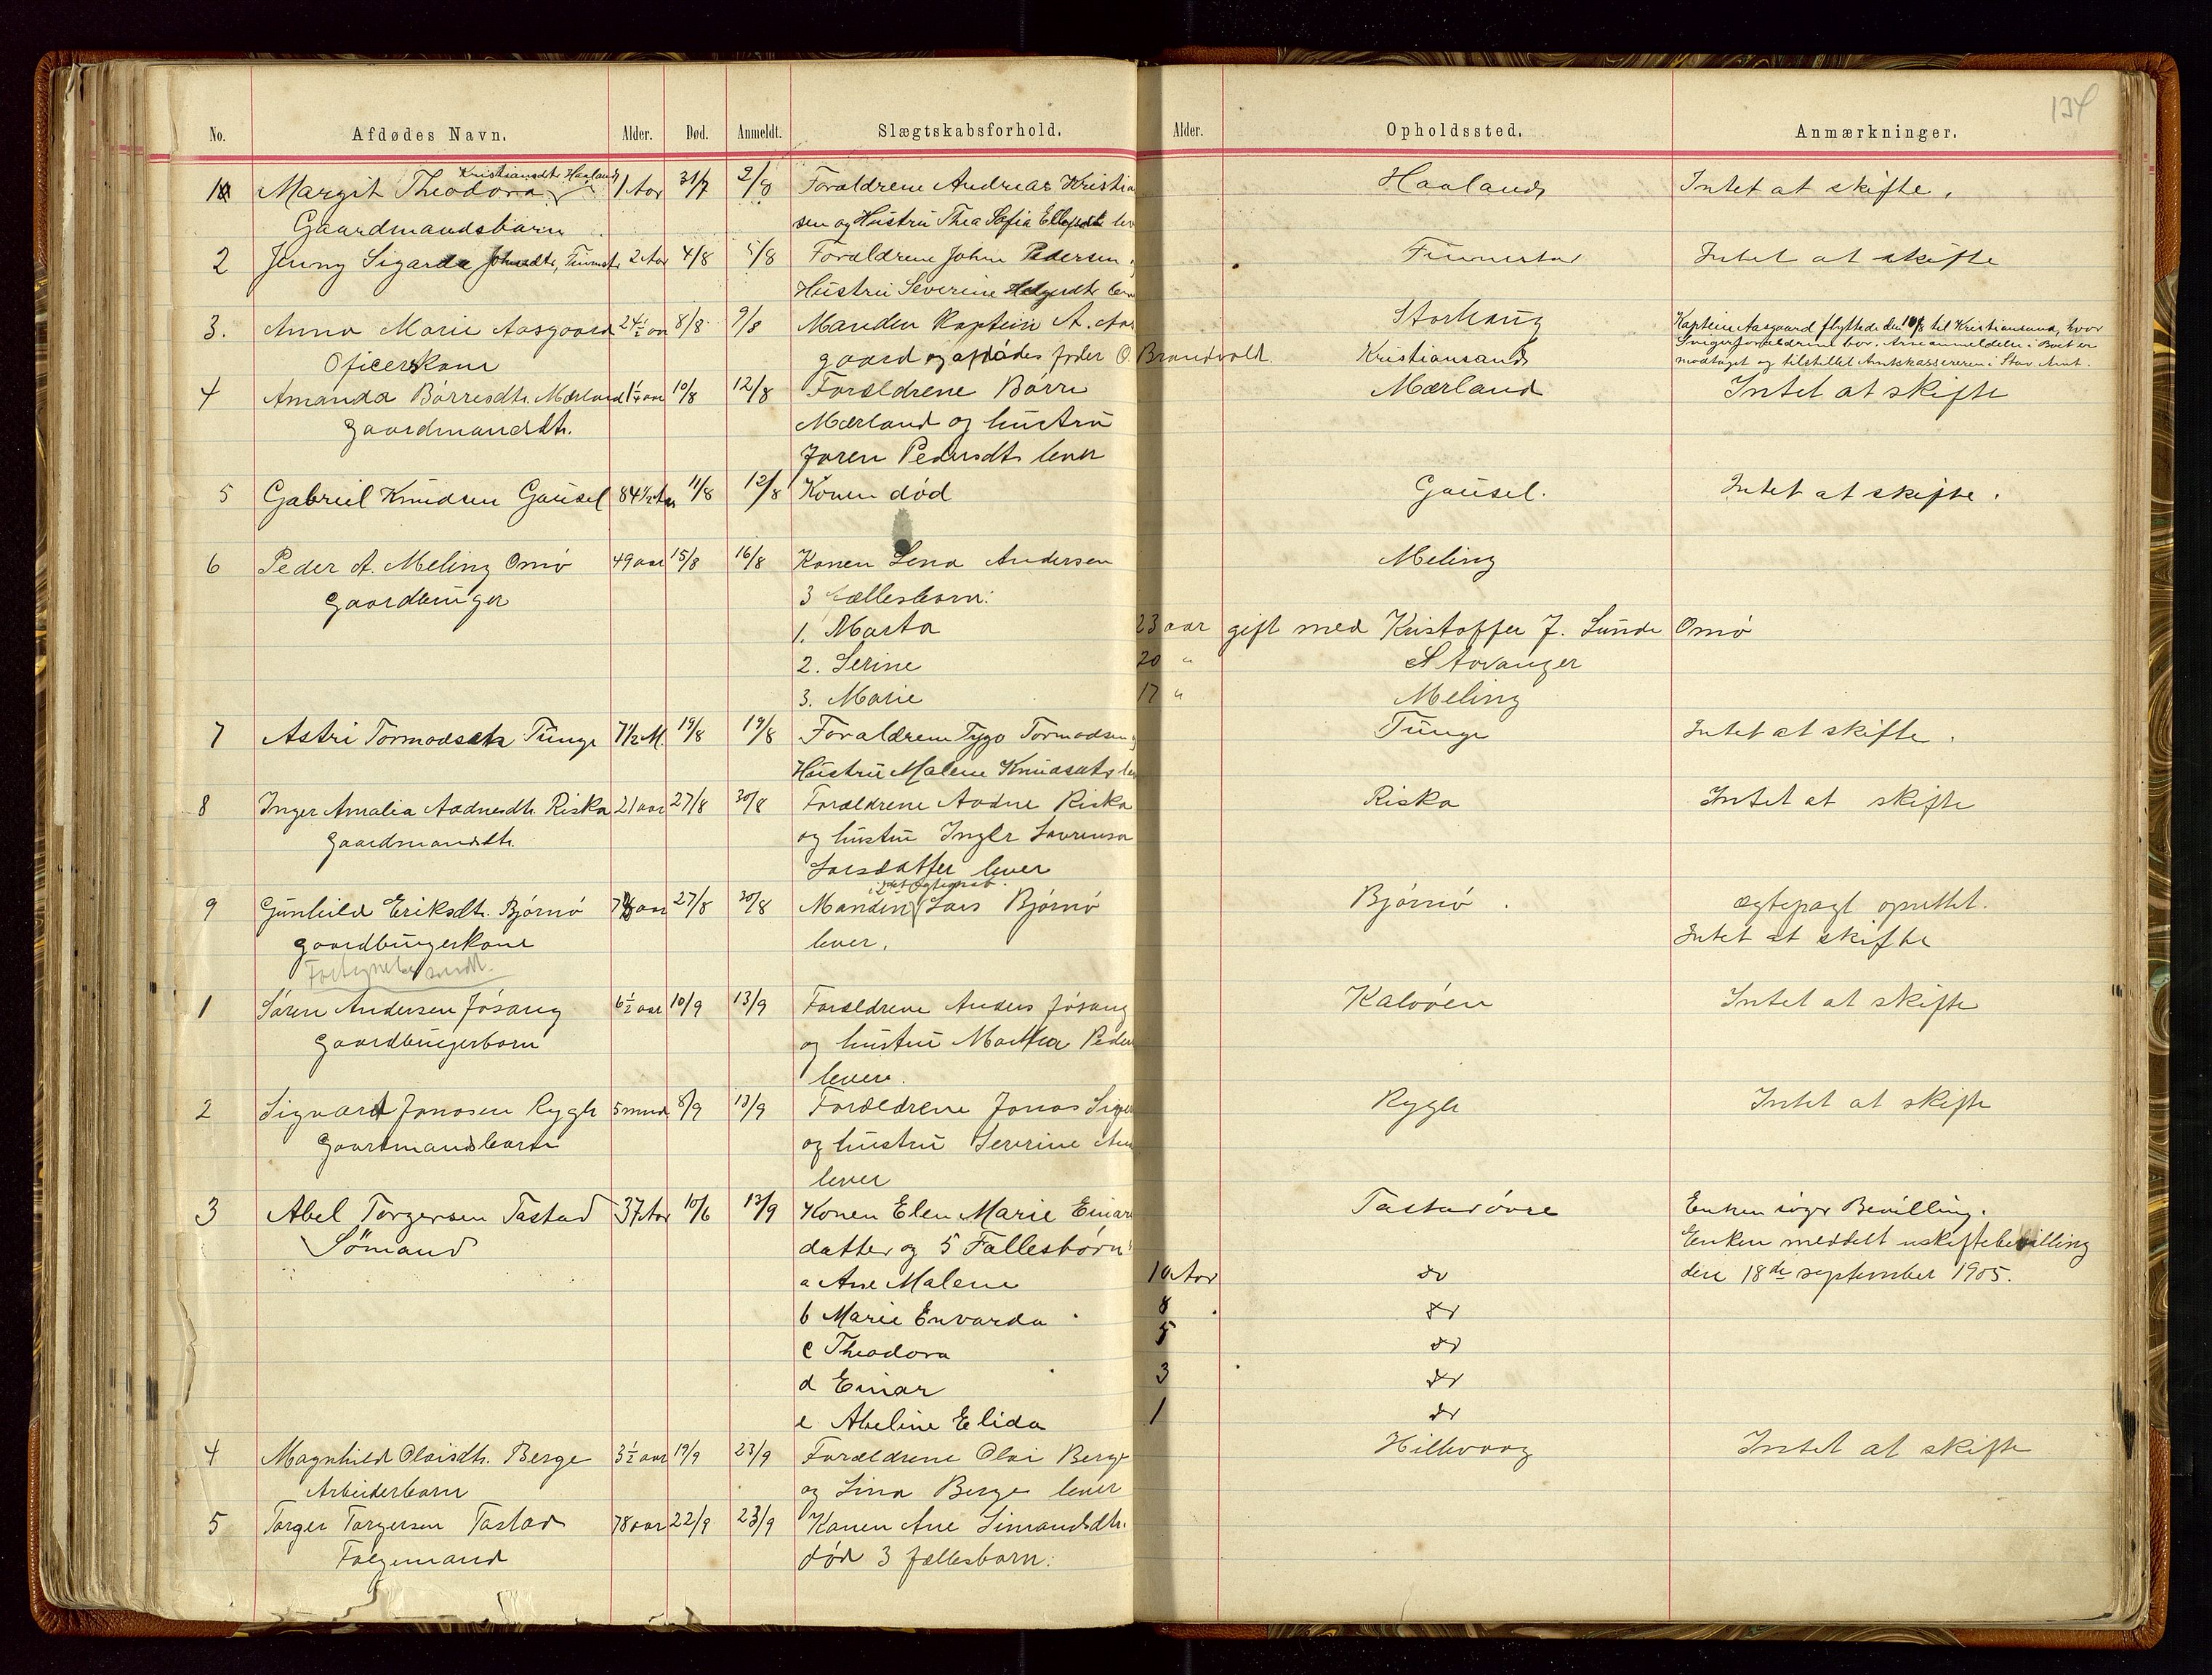 134
No. Afdødes Navn. Alder. Død. Anmeldt. Slægtskabsforhold. Alder. Opholdssted. Anmærkninger.
Kristiansdtr. Haaland
1 Margit Theodora 1 Aar 31/7 2/8 Forældrene Andreas Kristian Haaland Intet at skifte.
Gaardmandsbarn sen og Hustru Thea Sofia lev
2 Jenny Johnsdtr, 2 Aar 4/8 5/8 Forældrene John Pedersen Finnestad Intet at skifte
Hustru Severine lev
3. Anna Marie Aasgaard 24½ aar 8/8 9/8 Manden Kaptein A. Aas Storhaug Kaptein Aasgaard flyttede den til Kristiansand, hvor
Oficerskone gaard og afdødes fader O. Brandvold Kristiansand Svigerforældrene bor. i Boet er
modtaget og tilstillet Amtskassereren i Stav. Amt.
4 Amanda Børresdtr. Mærland 1¼ aar 10/8 12/8 Forældrene Børre Mærland Intet at skifte
gaardmandsdtr. Mærland og hustru
Joren Pedersdtr lever
5 Gabriel Knudsen Gausel 84½ Aar 11/8 12/8 Konen død Gausel. Intet at skifte.
6 Peder A. Meling Omø 49 aar 15/8 16/8 Konen Lena Andersen Meling
gaardbruger 3 fællesbarn:
1. Marta 23 aar gift med Kristoffer J. Lunde Omø
2. Serine 20 " Stavanger
3. Marie 17 " Meling
7 Astri Tormodsdtr Tunge 7½ M. 19/8 19/8 Forældrene Tormodsen Tunge Intet at skifte.
Hustru Malene Knudsdtr lev
8 Inger Amalia Aadnesdtr. Riska 21 aar 27/8 30/8 Forældrene Aadne Riska Riska Intet at skifte
gaardmandsdtr. og hustru Inger Laurensa
Larsdatter lever
i 2det Egteskab.
9 Gunhild Eriksdtr. Bjørnø aar 27/8 30/8 Manden Lars Bjørnø Bjørnø. ægtepagt oprettet.
gaardbrugerkone lever. Intet at skifte
1 Søren Andersen Jøsang 6½ aar 10/9 13/9 Forældrene Anders Jøsang Kalvøen Intet at skifte
gaardbrugerbarn og hustru Martha Peder
lever.
2 Sigvard Jonasen Rygh 5 mnd 8/9 13/9 Forældrene Jonas Rygh Intet at skifte
gaardmandsbarn og hustru Severine
lever
3 Abel Torgersen Tastad 37 Aar 10/6 13/9 Konen Elen Marie Einars Tastadøvre Enken søger Bevilling.
Sömand datter og 5 Fællesbørn: Enken meddelt uskiftebevilling
a Ane Malene 10 Aar do den 18de september 1905.
b Marie Envarda 8 do
c Theodora 5 do
d Einar 3 do
e Abeline Elida 1 do
4 Magnhild Olaisdtr. Berge 3½ aar 19/9 23/9 Forældrene Olai Berge Hillevaag Intet at skifte
Arbeiderbarn og Lina Berge lever
5 Torger Torgersen Tastad 78 aar 22/9 23/9 Konen Ane Simonsdtr.
død 3 fællesbarn: